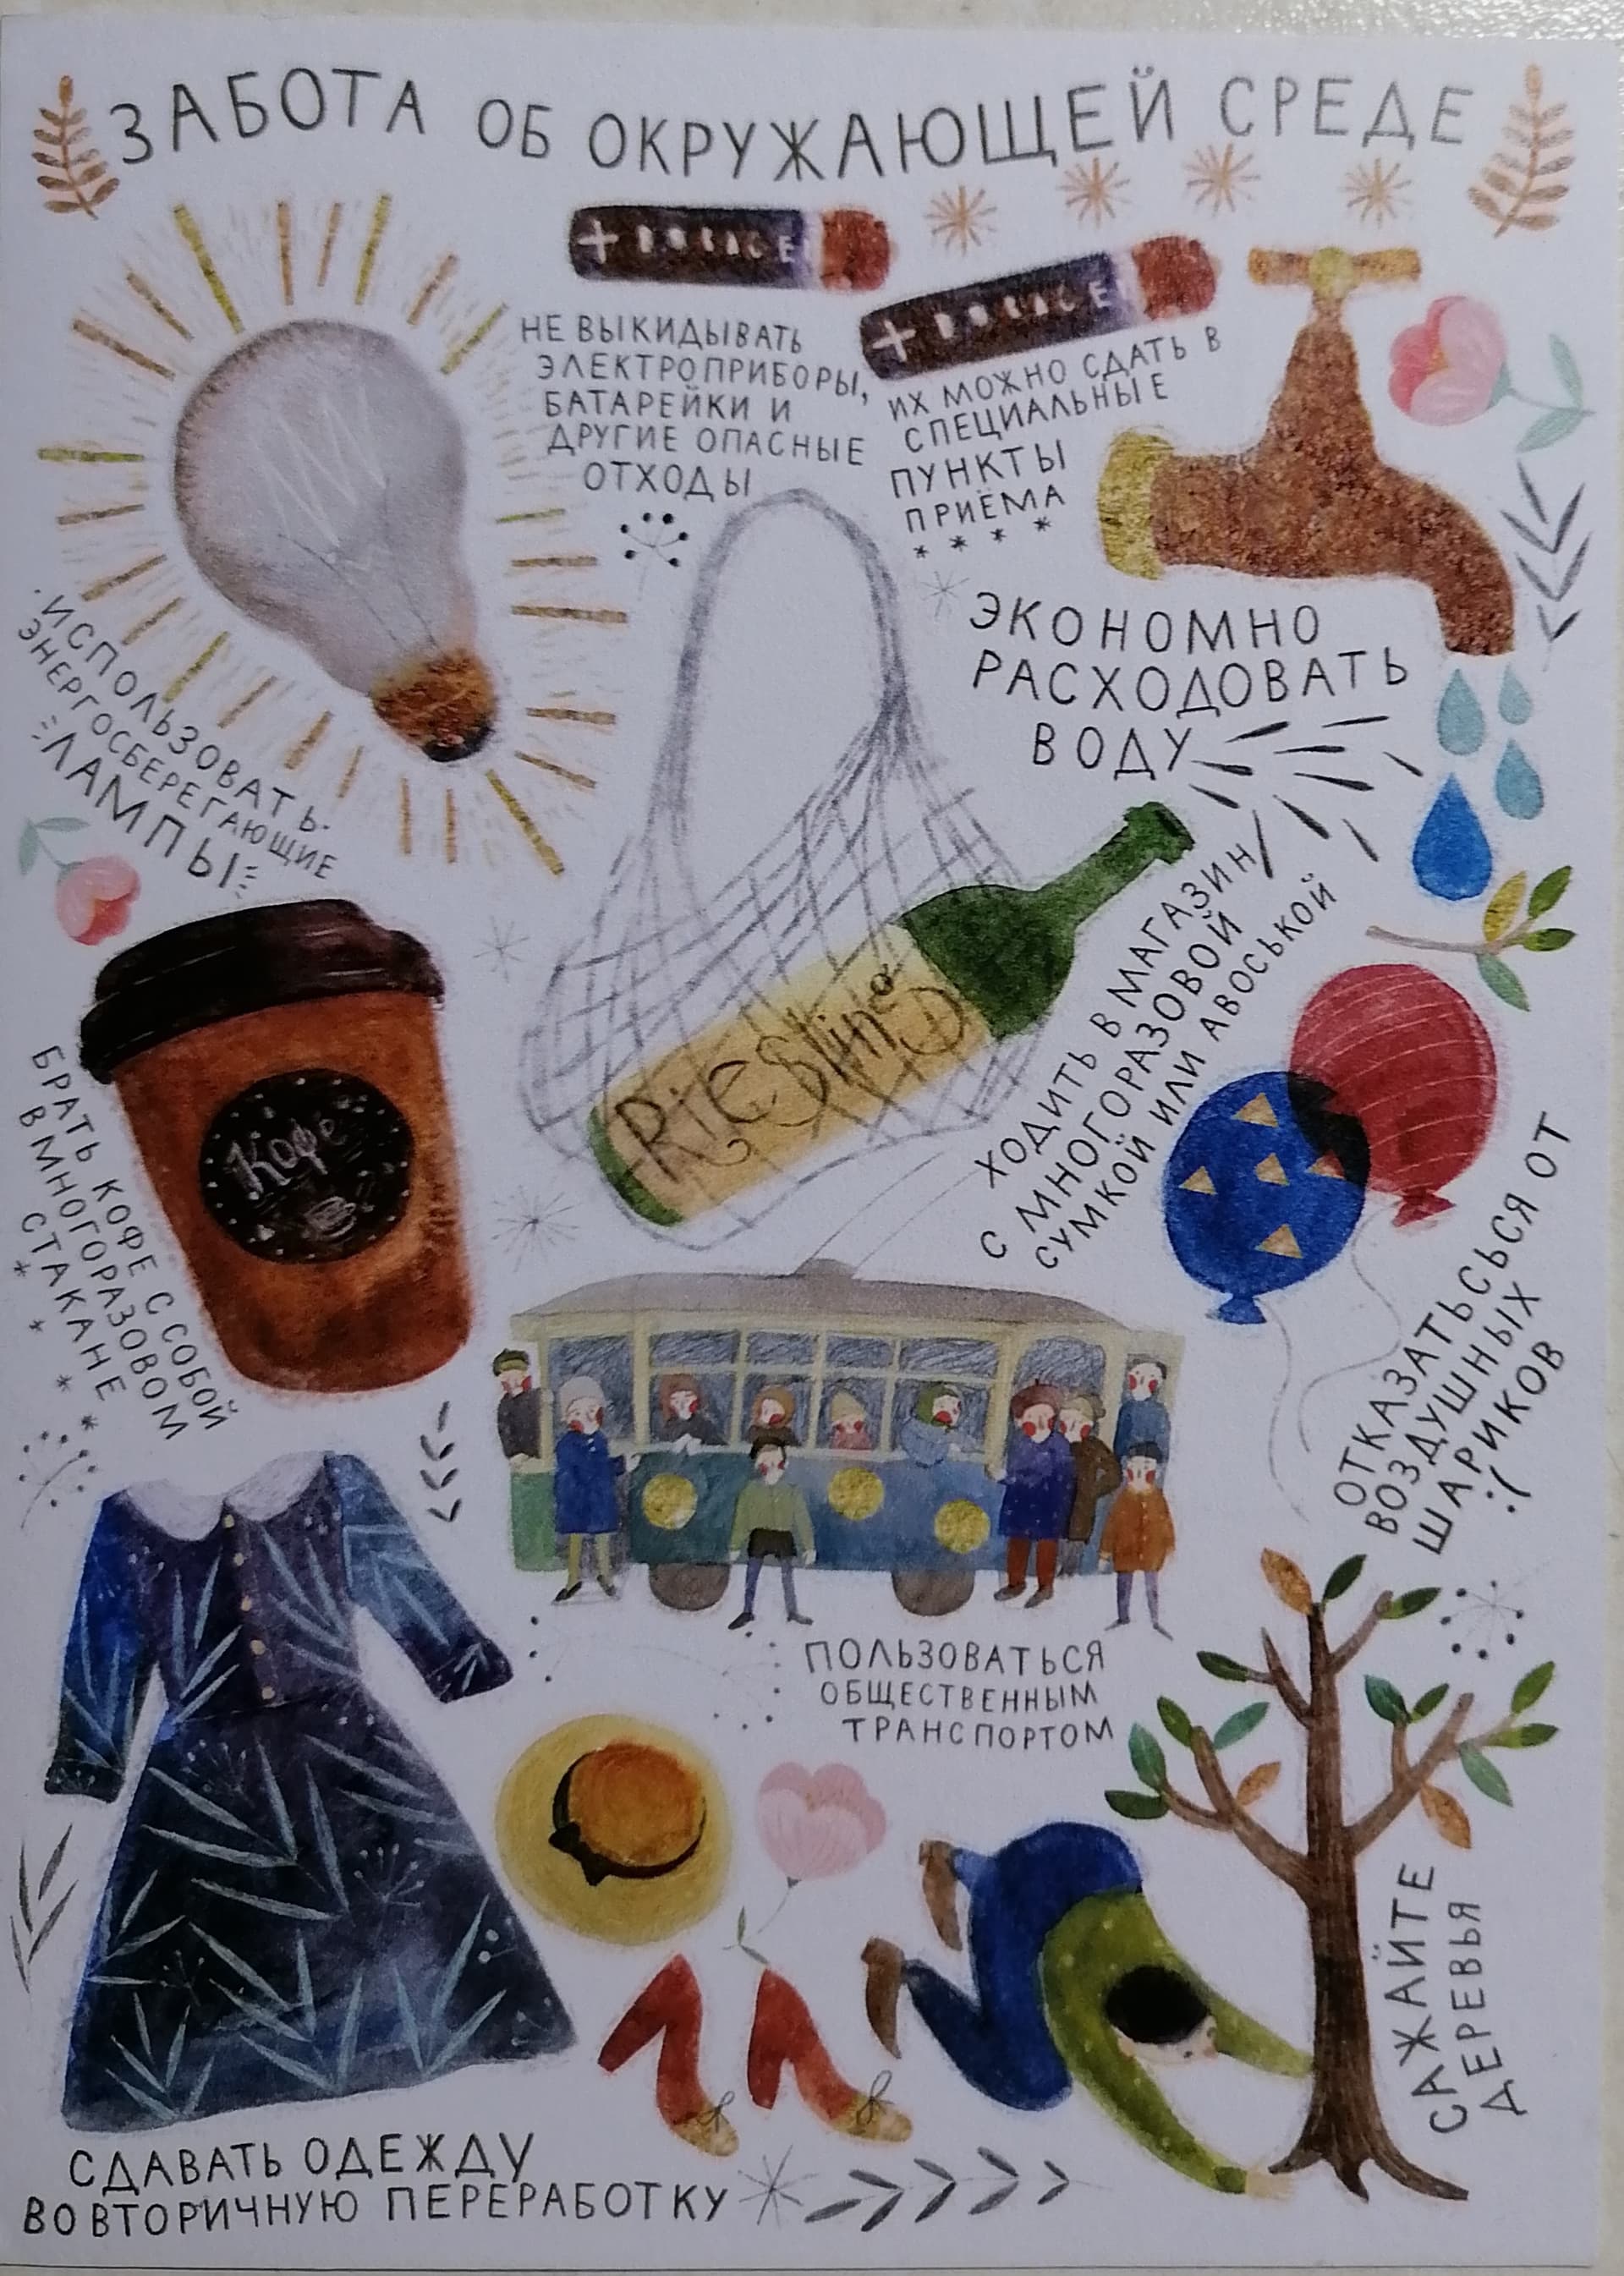 ЗАБОТА ОБ ОКРУЖАЮЩЕЙ СРЕДЕ
НЕ ВЫКИДЫВАТЬ
ЭЛЕКТРОПРИБОРЫ,
БАТАРЕЙКИ И
ДРУГИЕ ОПАСНЫЕ
ОТХОДЫ
ИХ МОЖНО СДАТЬ В
СПЕЦИАЛЬНЫЕ
ПУНКТЫ
ПРИЁМА
ИСПОЛЬЗОВАТЬ
ЭНЕРГОСБЕРЕГАЮЩИЕ
ЛАМПЫ
ЭКОНОМНО
РАСХОДОВАТЬ
ВОДУ
Riesling
ХОДИТЬ В МАГАЗИН
С МНОГОРАЗОВОЙ
СУМКОЙ ИЛИ АВОСЬКОЙ
Кофе
БРАТЬ КОФЕ С СОБОЙ
В МНОГОРАЗОВОМ
СТАКАНЕ
ОТКАЗАТЬСЬСЯ ОТ
ВОЗДУШНЫХ
ШАРИКОВ
:(
ПОЛЬЗОВАТЬСЯ
ОБЩЕСТВЕННЫМ
ТРАНСПОРТОМ
САЖАЙТЕ
ДЕРЕВЬЯ
СДАВАТЬ ОДЕЖДУ
ВО ВТОРИЧНУЮ ПЕРЕРАБОТКУ